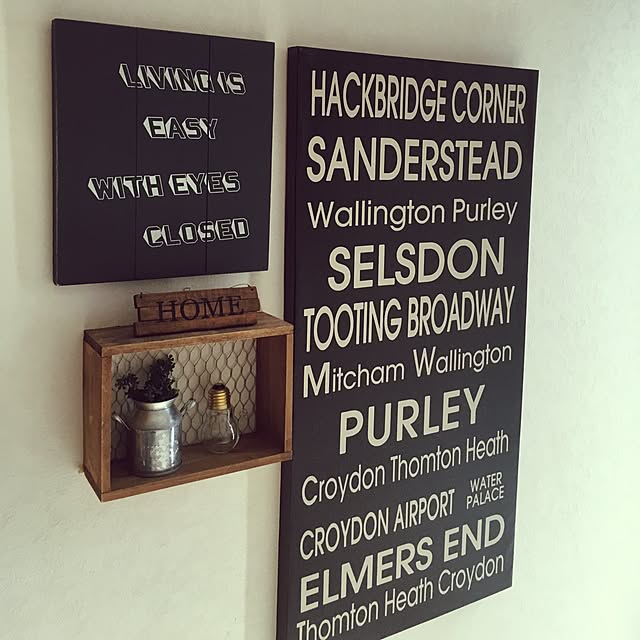 LIVING IS
EASY
WITH EYES
CLOSED
HOME
HACKBRIDGE CORNER
SANDERSTEAD
Wallington Purley
SELSDON
TOOTING BROADWAY
Mitcham Wallington
PURLEY
Croydon Thomton Heath
CROYDON AIRPORT WATER
PALACE
ELMERS END
Thomton Heath Croydon